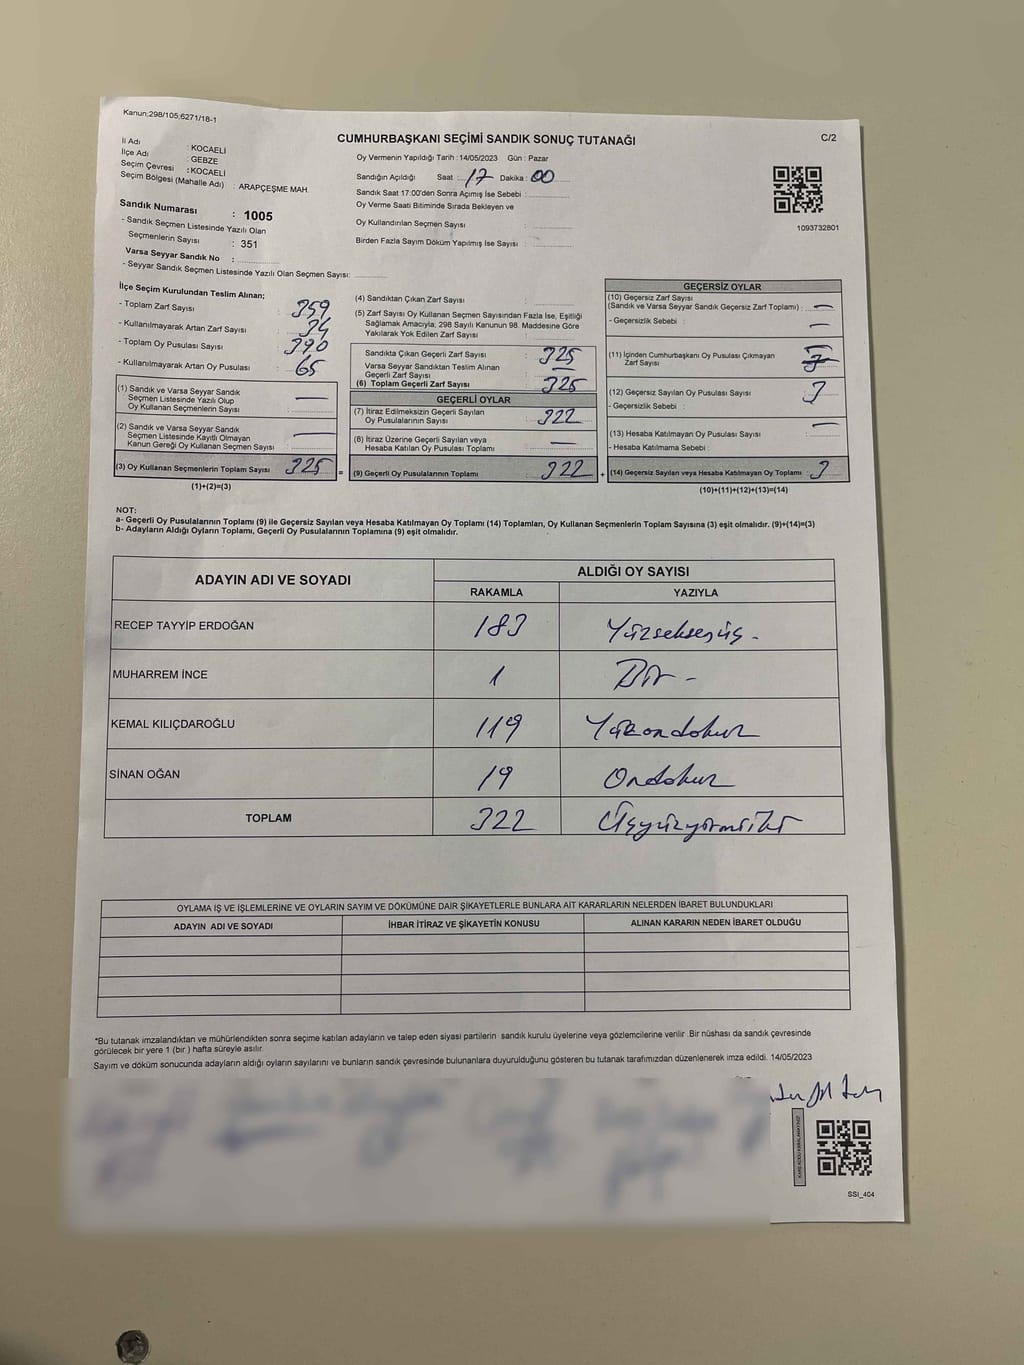 Kanun;298/105;6271/18-1
CUMHURBAŞKANI SEÇİMİ SANDIK SONUÇ TUTANAĞI
C/2
İl Adı : KOCAELİ
İlçe Adı : GEBZE
Seçim Çevresi : KOCAELİ
Seçim Bölgesi (Mahalle Adı) : ARAPÇEŞME MAH.
Sandık Numarası : 1005
- Sandık Seçmen Listesinde Yazılı Olan
Seçmenlerin Sayısı : 351
Varsa Seyyar Sandık No :
- Seyyar Sandık Seçmen Listesinde Yazılı Olan Seçmen Sayısı:
Oy Vermenin Yapıldığı Tarih :14/05/2023 Gün : Pazar
Sandığın Açıldığı Saat : 17 Dakika : 00
Sandık Saat 17:00'den Sonra Açımış İse Sebebi :
Oy Verme Saati Bitiminde Sırada Bekleyen ve
Oy Kullandırılan Seçmen Sayısı :
Birden Fazla Sayım Döküm Yapılmış İse Sayısı :
1093732801
İlçe Seçim Kurulundan Teslim Alınan;
- Toplam Zarf Sayısı : 359
- Kullanılmayarak Artan Zarf Sayısı : 34
- Toplam Oy Pusulası Sayısı : 390
- Kullanılmayarak Artan Oy Pusulası : 65
(1) Sandık ve Varsa Seyyar Sandık
Seçmen Listesinde Yazılı Olup
Oy Kullanan Seçmenlerin Sayısı : —
(2) Sandık ve Varsa Seyyar Sandık
Seçmen Listesinde Kayıtlı Olmayan
Kanun Gereği Oy Kullanan Seçmen Sayısı : —
(3) Oy Kullanan Seçmenlerin Toplam Sayısı 325 =
(1)+(2)=(3)
(4) Sandıktan Çıkan Zarf Sayısı :
(5) Zarf Sayısı Oy Kullanan Seçmen Sayısından Fazla İse, Eşitliği
Sağlamak Amacıyla; 298 Sayılı Kanunun 98. Maddesine Göre
Yakılarak Yok Edilen Zarf Sayısı :
Sandıkta Çıkan Geçerli Zarf Sayısı : 325
Varsa Seyyar Sandıktan Teslim Alınan
Geçerli Zarf Sayısı : —
(6) Toplam Geçerli Zarf Sayısı : 325
GEÇERLİ OYLAR
(7) İtiraz Edilmeksizin Geçerli Sayılan
Oy Pusulalarının Sayısı : 322
(8) İtiraz Üzerine Geçerli Sayılan veya
Hesaba Katılan Oy Pusulası Toplamı : —
(9) Geçerli Oy Pusulalarının Toplamı : 322 +
GEÇERSİZ OYLAR
(10) Geçersiz Zarf Sayısı
(Sandık ve Varsa Seyyar Sandık Geçersiz Zarf Toplamı) : —
- Geçersizlik Sebebi : —
(11) İçinden Cumhurbaşkanı Oy Pusulası Çıkmayan
Zarf Sayısı :
(12) Geçersiz Sayılan Oy Pusulası Sayısı : 3
- Geçersizlik Sebebi :
(13) Hesaba Katılmayan Oy Pusulası Sayısı : —
- Hesaba Katılmama Sebebi :
(14) Geçersiz Sayılan veya Hesaba Katılmayan Oy Toplamı : 3
(10)+(11)+(12)+(13)=(14)
NOT:
a- Geçerli Oy Pusulalarının Toplamı (9) ile Geçersiz Sayılan veya Hesaba Katılmayan Oy Toplamı (14) Toplamları, Oy Kullanan Seçmenlerin Toplam Sayısına (3) eşit olmalıdır. (9)+(14)=(3)
b- Adayların Aldığı Oyların Toplamı, Geçerli Oy Pusulalarının Toplamına (9) eşit olmalıdır.
ADAYIN ADI VE SOYADI
ALDIĞI OY SAYISI
RAKAMLA YAZIYLA
RECEP TAYYİP ERDOĞAN 183 Yüzseksenüç -
MUHARREM İNCE 1 Bir -
KEMAL KILIÇDAROĞLU 119 Yüzondokuz
SİNAN OĞAN 19 Ondokuz
TOPLAM 322 Üçyüzyirmiiki
OYLAMA İŞ VE İŞLEMLERİNE VE OYLARIN SAYIM VE DÖKÜMÜNE DAİR ŞİKAYETLERLE BUNLARA AİT KARARLARIN NELERDEN İBARET BULUNDUKLARI
ADAYIN ADI VE SOYADI İHBAR İTİRAZ VE ŞİKAYETİN KONUSU ALINAN KARARIN NEDEN İBARET OLDUĞU
*Bu tutanak imzalandıktan ve mühürlendikten sonra seçime katılan adayların ve talep eden siyasi partilerin sandık kurulu üyelerine veya gözlemcilerine verilir .Bir nüshası da sandık çevresinde
görülecek bir yere 1 (bir ) hafta süreyle asılır.
Sayım ve döküm sonucunda adayların aldığı oyların sayılarını ve bunların sandık çevresinde bulunanlara duyurulduğunu gösteren bu tutanak tarafımızdan düzenlenerek imza edildi. 14/05/2023
SSI_404